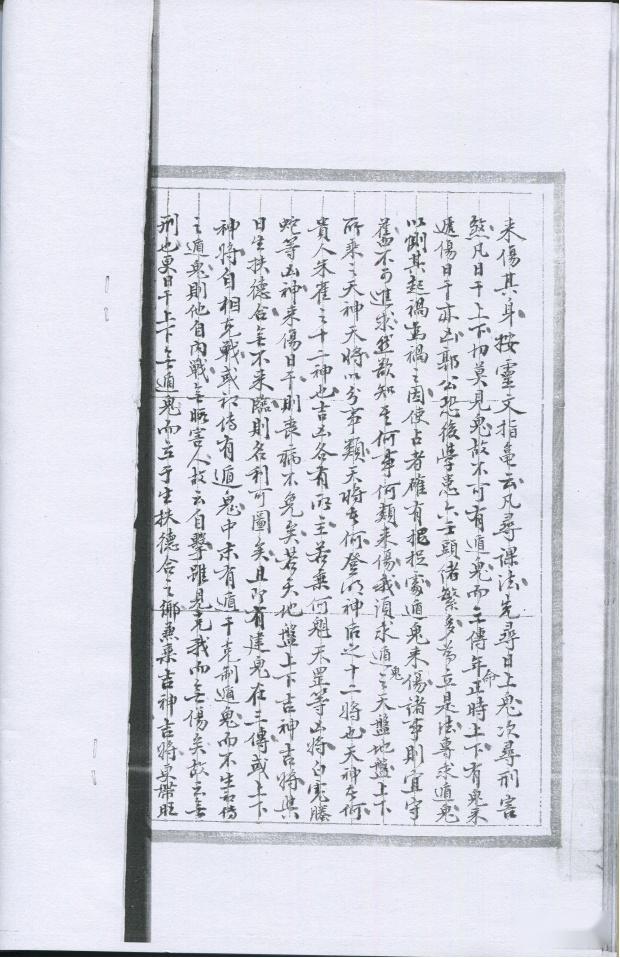 来傷其身按靈文指龜云凡尋課法先尋日上鬼次尋刑害
煞凡日干上下切莫見鬼故不可有遁鬼而三傳年命正時上下有鬼來
遁傷日干亦凶郭公恐後學患六壬頭緒繁多為立是法專求遁鬼
以測其起禍為禍之因使占者確有把捉霎遁鬼來傷諸事則宜守
舊不可進求然欲知其何事何類来傷我須求遁鬼之天盤地盤上下
所乘之天神天將以分事類天將者何登明神后之十二將也天神者何
貴人朱雀之十二神也吉凶各有所主若乘河魁天罡等凶將白虎騰
蛇等凶神来傷日干則喪病不免矣若天地盤上下吉神吉將與
日生扶德合無不来臨則名利可圖矣且即有建鬼在三傳或上下
神將自相克戰或初傳有遁鬼中末有遁干克制遁鬼而不生初傳
之遁鬼則他自內戰無暇害人故云自擊雖見克我而無傷矣故云無
刑也更日干上下無遁鬼而立于生扶德合之鄉兼乘吉神吉將更帶旺